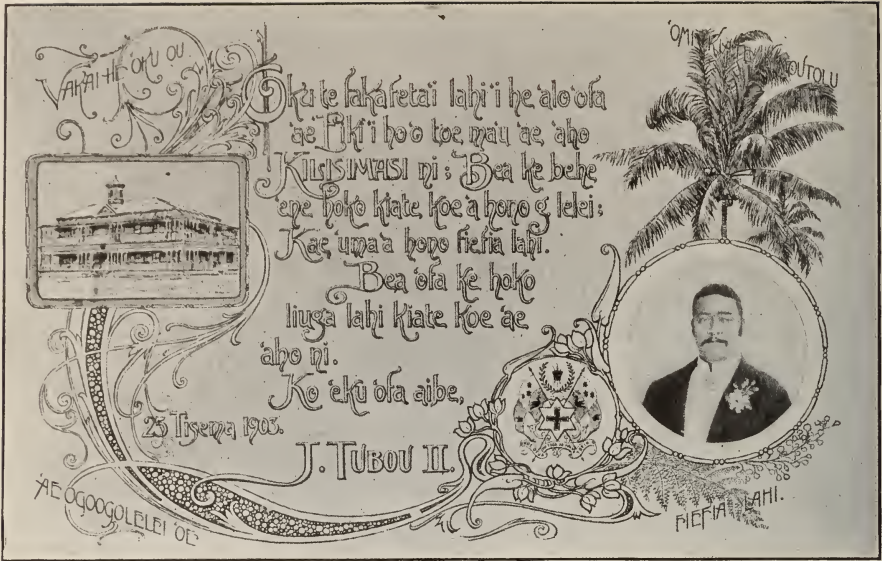 VAKAI HE 'OKU OU
'Oku te fakafeta'i lahi 'i he 'alo'ofa
'ae 'Eiki 'i ho'o toe ma'u 'ae 'aho
KILISIMASI ni : Bea ke behe
'ene hoko kiate koe 'a hono g lelei :
Kae 'uma'a hono fiefia lahi.
Bea 'ofa ke hoko
liuga lahi kiate koe 'ae
'aho ni.
Ko 'eku 'ofa aibe,
25 Tisema 1903.
J. TUBOU II.
'AE OGOOGOLELEI 'OE
FIEFIA LAHI.